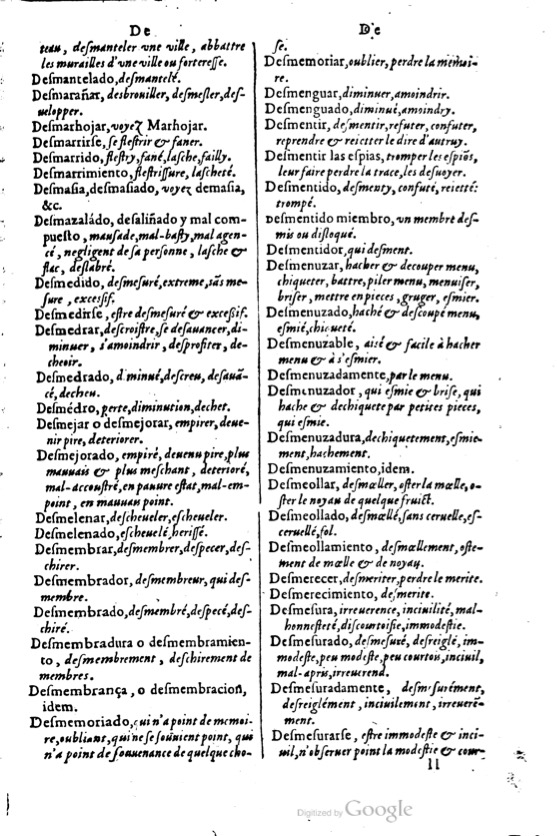 De
teau, desmanteler vne ville, abbattre
les murailles d'vne ville ou forteresse.
Desmantelado, desmantelé.
Desmarañar, desbrouiller, desmesler, des-
uelopper.
Desmarhojar, voyez Marhojar.
Desmarrirse, se flestrir & faner.
Desmarrido, flestry, fané, lasche, failly.
Desmarrimiento, flestrissure, lascheté.
Desmasia, desmasiado, voyez demasia,
&c.
Desmazaládo, desaliñado y mal com-
puesto, maussade, mal-basty, mal agen-
cé, negligent de sa personne, lasche &
flac, deslabré.
Desmedido, desmesuré, extreme, sãs me-
sure, excessif.
Desmedirse, estre desmesuré & excessif.
Desmedrar, descroistre, se desauancer, di-
minuer, s'amoindrir, desprofiter, de-
cheoir.
Desmedrado, diminué, descreu, desauã-
cé, decheu.
Desmédro, perte, diminution, dechet.
Desmejar o desmejorar, empirer, deue-
nir pire, deteriorer.
Desmejorado, empiré, deuenu pire, plus
mauuais & plus meschant, deterioré,
mal-accoustré, en pauure estat, mal-em-
point, en mauuau point.
Desmelenar, descheueler, escheueler.
Desmelenado, escheuelé, herissé.
Desmembrar, desmembrer, despecer, des-
chirer.
Desmembrador, desmembreur, qui des-
membre.
Desmembrado, desmembré, despecé, des-
chiré.
Desmembradura o desmembramien-
to, desmembrement, deschirement de
membres.
Desmembrança, o desmembracion,
idem.
Desmemoriado, qui n'a point de memoi-
re, oubliant, qui ne se souuient point, qui
n'a point de souuenance de quelque cho-
De
se.
Desmemoriar, oublier, perdre la memoi-
re.
Desmenguar, diminuer, amoindrir.
Desmenguado, diminué, amoindry.
Desmentir, desmentir, refuter, confuter,
reprendre & reietter le dire d'autruy.
Desmentir las espias, tromper les espiõs,
leur faire perdre la trace, les desuoyer.
Desmentido, desmenty, confuté, reietté:
trompé.
Desmentido miembro, vn membre des-
mis ou disloqué.
Desmentidor, qui desment.
Desmenuzar, hacher & decouper menu,
chiqueter, battre, piler menu, menuiser,
briser, mettre en pieces, gruger, esmier.
Desmenuzado, haché & descoupé menu,
esmié, chiqueté.
Desmenuzable, aisé & facile à hacher
menu & à s'esmier.
Desmenuzadamente, par le menu.
Desmenuzador, qui esmie & brise, qui
hache & dechiquete par petites pieces,
qui esmie.
Desmenuzadura, dechiquetement, esmie-
ment, hachement.
Desmenuzamiento, idem.
Desmeollar, desmœller, oster la mœlle, o-
ster le noyau de quelque fruict.
Desmeollado, desmœllé, sans ceruelle, es-
ceruellé, fol.
Desmeollamiento, desmœllement, oste-
ment de mœlle & de noyau.
Desmerecer, desmeriter, perdre le merite.
Desmerecimiento, desmerite.
Desmesura, irreuerence, inciuilité, mal-
honnesteté, discourtoisie, immodestie.
Desmesurado, desmesuré, desreiglé, im-
modeste, peu modeste, peu courtois, inciuil,
mal-apris, irreuerend.
Desmesuradamente, desmesurément,
desreiglément, inciuilement, irreuerẽ-
ment.
Desmesurarse, estre immodeste & inci-
uil, n'obseruer point la modestie & cour-
ll
Digitized by Google